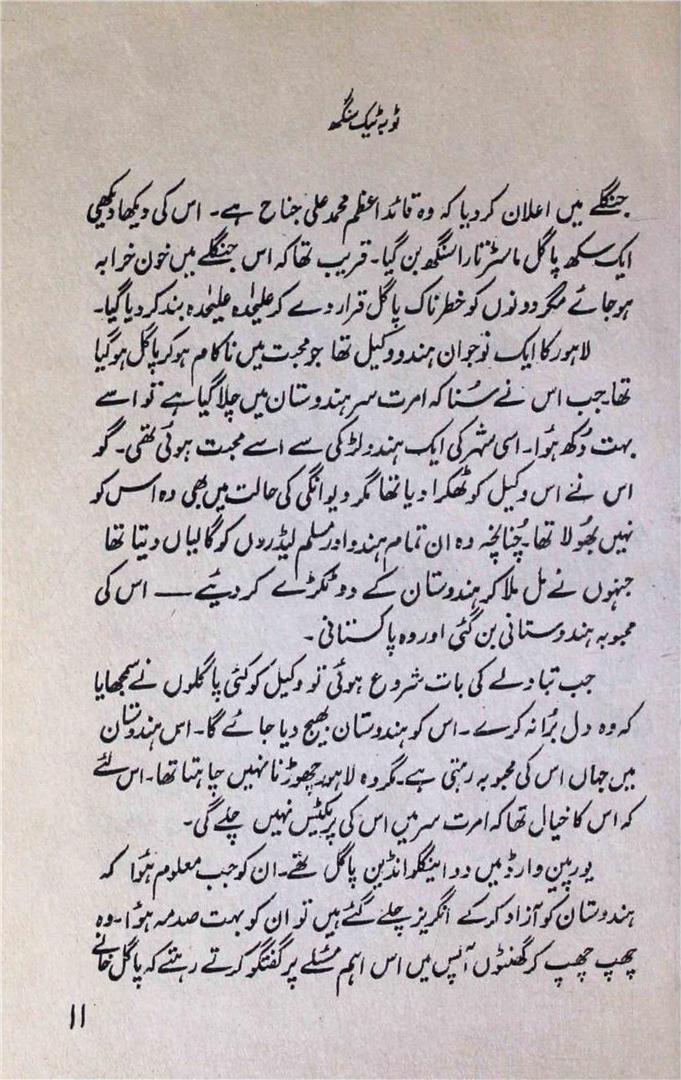 ٹوبہ ٹیک سنگھ
جنگلے میں اعلان کر دیا کہ وہ قائد اعظم محمد علی جناح ہے۔ اس کی دیکھا دیکھی
ایک سکھ پاگل ماسٹر تارا سنگھ بن گیا۔ قریب تھا کہ اس جنگلے میں خون خرابہ
ہو جائے مگر دونوں کو خطرناک پاگل قرار دے کر علیحٰدہ علیحٰدہ بند کر دیا گیا۔
لاہور کا ایک نوجوان ہندو وکیل تھا جو محبت میں ناکام ہو کر پاگل ہو گیا
تھا۔ جب اس نے سُنا کہ امرت سر ہندوستان میں چلا گیا ہے تو اسے
بہت دُکھ ہوُا۔ اسی شہر کی ایک ہندو لڑکی سے اسے محبت ہوئی تھی۔ گو
اس نے اس وکیل کو ٹھکرا دیا تھا مگر دیوانگی کی حالت میں بھی وہ اس کو
نہیں بھُولا تھا۔ چُنانچہ وہ ان تمام ہندو اور مسلم لیڈروں کو گالیاں دیتا تھا
جنہوں نے مل ملا کر ہندوستان کے دو ٹکڑے کر دیئے ــــ اس کی
محبوبہ ہندوستانی بن گئی اور وہ پاکستانی۔
جب تبادلے کی بات شروع ہوئی تو وکیل کو کئی پاگلوں نے سمجھایا
کہ وہ دل بُرا نہ کرے۔ اس کو ہندوستان بھیج دیا جائے گا۔ اس ہندوستان
میں جہاں اس کی محبوبہ رہتی ہے۔ مگر وہ لاہور چھوڑنا نہیں چاہتا تھا۔ اس لئے
کہ اس کا خیال تھا کہ امرت سر میں اس کی پریکٹس نہیں چلے گی۔
یورپین وارڈ میں دو اینگلو انڈین پاگل تھے۔ ان کو جب معلوم ہوُا کہ
ہندوستان کو آزاد کر کے انگریز چلے گئے ہیں تو ان کو بہت صدمہ ہوُا۔ وہ
چھپ چھپ کر گھنٹوں آپس میں اس اہم مسئلے پر گفتگو کرتے رہتے کہ پاگل خانے
۱۱